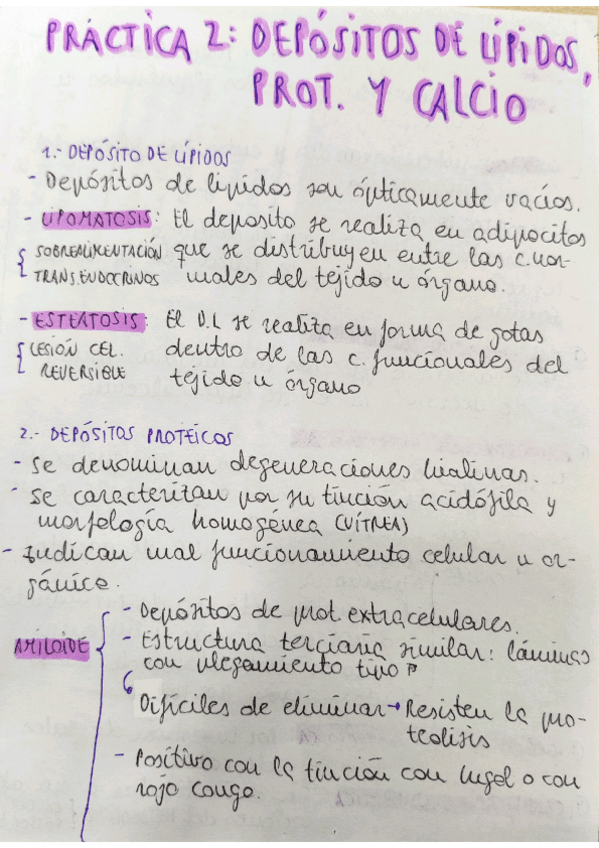 PRÁCTICA 2: DEPÓSITOS DE LÍPIDOS,
PROT. Y CALCIO
1.- DEPÓSITO DE LÍPIDOS
- Depósitos de lípidos son ópticamente vacíos.
- LIPOMATOSIS: El deposito se realiza en adipocitos
SOBREALIMENTACIÓN que se distribuyen entre las c. nor-
TRANS. ENDOCRINOS males del tejido u órgano.
- ESTEATOSIS: El D.L se realiza en forma de gotas
LESIÓN CEL. dentro de las c. funcionales del
REVERSIBLE tejido u órgano
2.- DEPÓSITOS PROTÉICOS
- Se denominan degeneraciones hialinas.
- Se caracterizan por su tinción acidófila y
morfología homogénea (VÍTREA)
- Indican mal funcionamiento celular u or-
gánico.
- Depósitos de prot. extracelulares.
AMILOIDE - Estructura terciaria similar: láminas
con plegamiento tipo β
Difíciles de eliminar → Resisten la pro-
teolisis
- Positivo con la tinción con lugol o con
rojo congo.